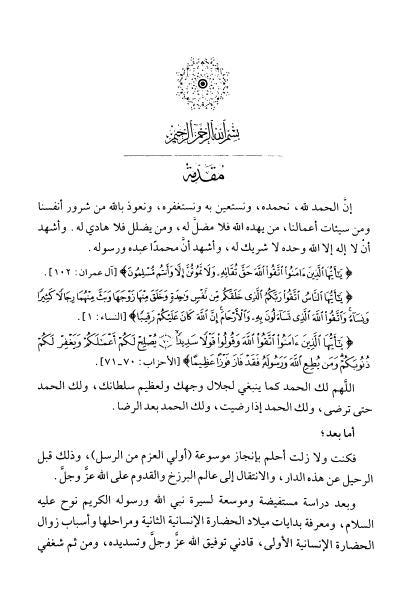 بِسْمِ اللهِ الرَّحْمَنِ الرَّحِيمِ
مقدمة
إنَّ الحمد لله، نحمده، ونستعين به ونستغفره، ونعوذ بالله من شرور أنفسنا
ومن سيئات أعمالنا، من يهده الله فلا مضلَّ له، ومن يضلل فلا هادي له. وأشهد
أنْ لا إله إلا الله وحده لا شريك له، وأشهد أنَّ محمدًا عبده ورسوله.
﴿ يَٰٓأَيُّهَا ٱلَّذِينَ ءَامَنُوا۟ ٱتَّقُوا۟ ٱللَّهَ حَقَّ تُقَاتِهِۦ وَلَا تَمُوتُنَّ إِلَّا وَأَنتُم مُّسْلِمُونَ﴾ [آل عمران: ١٠٢].
﴿ يَٰٓأَيُّهَا ٱلنَّاسُ ٱتَّقُوا۟ رَبَّكُمُ ٱلَّذِى خَلَقَكُم مِّن نَّفْسٍ وَٰحِدَةٍ وَخَلَقَ مِنْهَا زَوْجَهَا وَبَثَّ مِنْهُمَا رِجَالًا كَثِيرًا
وَنِسَآءً وَٱتَّقُوا۟ ٱللَّهَ ٱلَّذِى تَسَآءَلُونَ بِهِۦ وَٱلْأَرْحَامَ إِنَّ ٱللَّهَ كَانَ عَلَيْكُمْ رَقِيبًا﴾ [النساء: ١].
﴿ يَٰٓأَيُّهَا ٱلَّذِينَ ءَامَنُوا۟ ٱتَّقُوا۟ ٱللَّهَ وَقُولُوا۟ قَوْلًا سَدِيدًا ٧٠ يُصْلِحْ لَكُمْ أَعْمَٰلَكُمْ وَيَغْفِرْ لَكُمْ
ذُنُوبَكُمْ وَمَن يُطِعِ ٱللَّهَ وَرَسُولَهُۥ فَقَدْ فَازَ فَوْزًا عَظِيمًا﴾ [الأحزاب: ٧٠-٧١].
اللَّهم لك الحمد كما ينبغي لجلال وجهك ولعظيم سلطانك، ولك الحمد
حتى ترضى، ولك الحمد إذا رضيت، ولك الحمد بعد الرضا.
أما بعد؛
فكنت ولا زلت أحلم بإنجاز موسوعة (أولي العزم من الرسل)، وذلك قبل
الرحيل عن هذه الدار، والانتقال إلى عالم البرزخ والقدوم على الله عزَّ وجلَّ.
وبعد دراسة مستفيضة وموسعة لسيرة نبي الله ورسوله الكريم نوح عليه
السلام، ومعرفة بدايات ميلاد الحضارة الإنسانية الثانية ومراحلها وأسباب زوال
الحضارة الإنسانية الأولى، قادني توفيق الله عزَّ وجلَّ وتسديده، ومن ثم شغفي